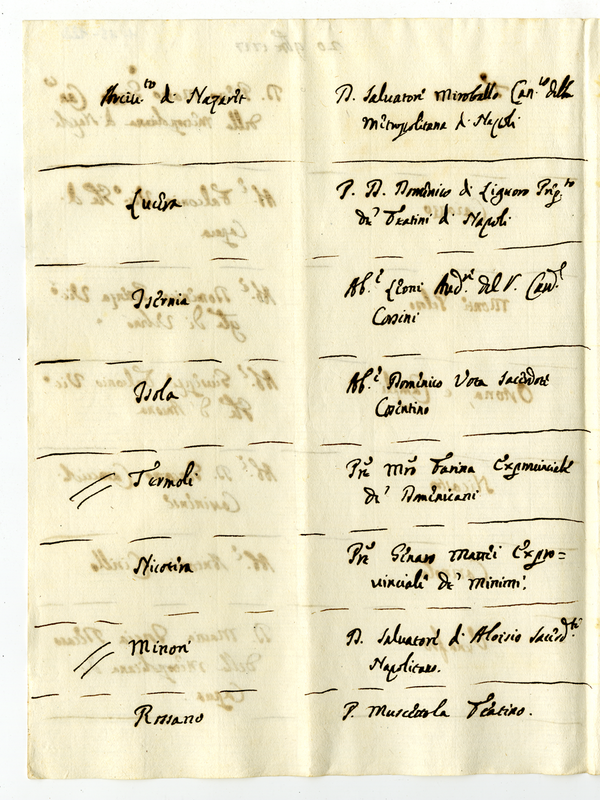 Arciu.to di Nazaret
D. Salvatore Miroballo Can.co della
Metropolitana di Napoli
Lucera
P. D. Domenico di Liguoro Prep.to
de' Teatini di Napoli
Isernia
Ab.e Leoni Aud.re del S. Card.l
Corsini
Isola
Ab.e Domenico Vota Sacerdote
Cosentino
Termoli
Pre Mro Farina Exprovinciale
de' Domenicani
Nicotera
Pre Genaro Mattei Expro=
vinciale de' Minimi.
Minori
D. Salvatore di Aloisio Sacerd.te
Napolitano.
Rossano
P. Muscettola Teatino.